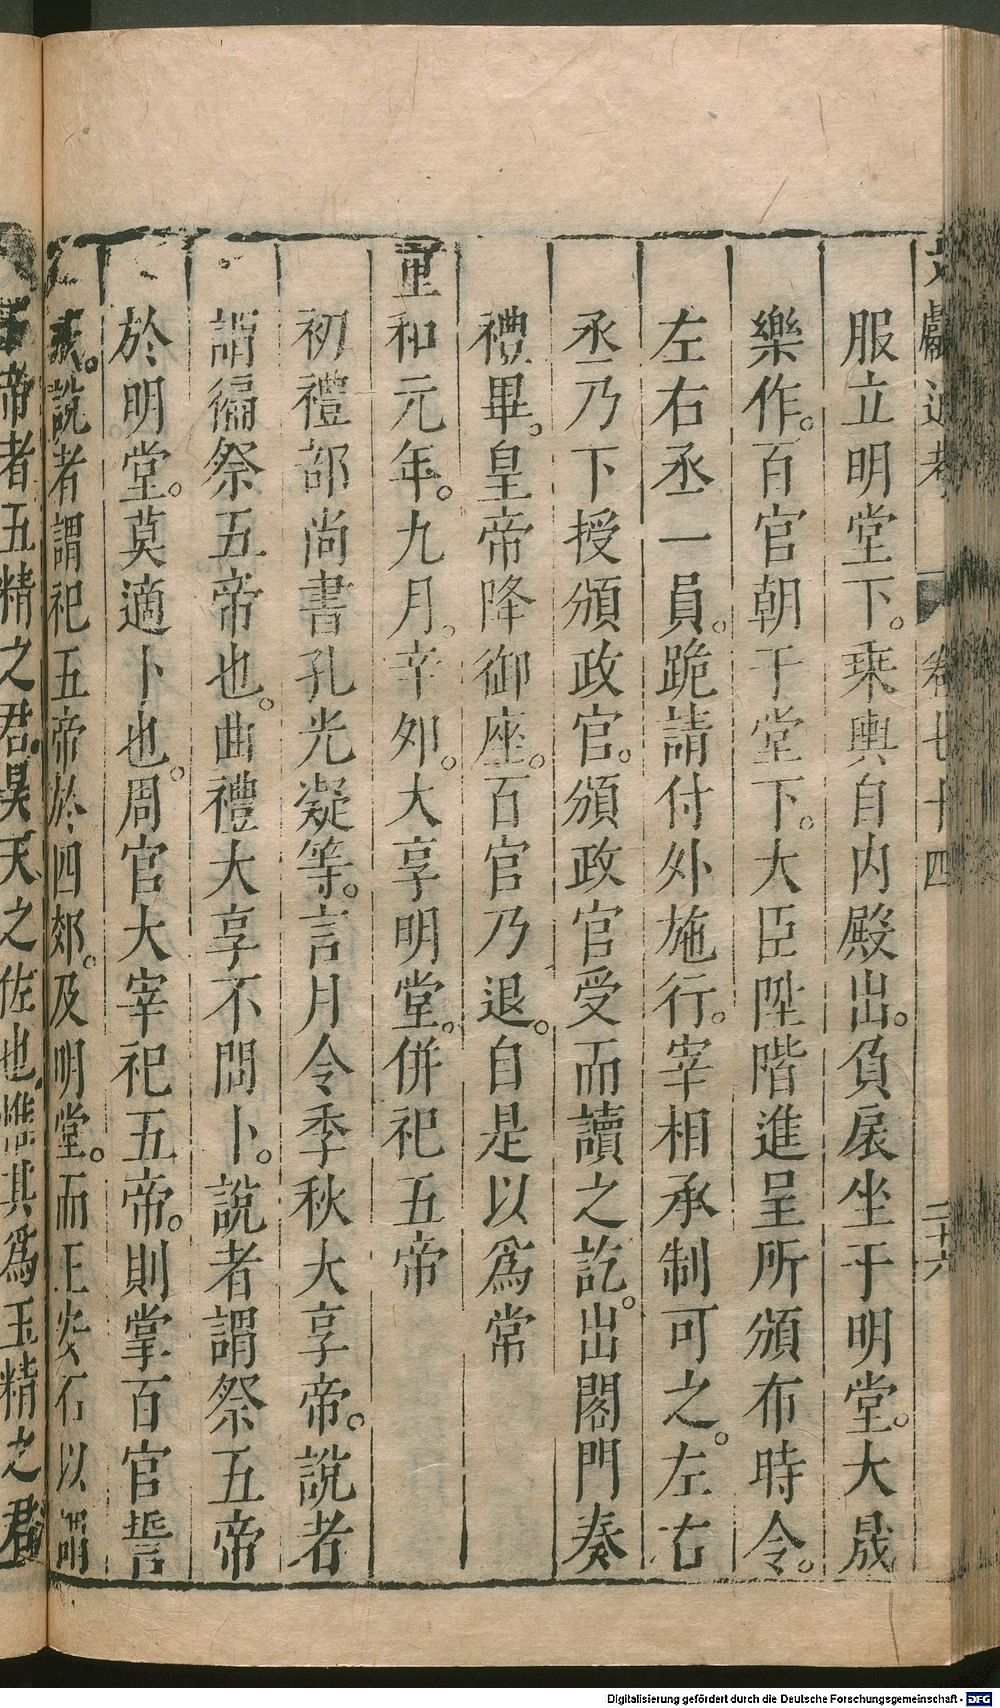 文獻通考 卷七十四 二十六
服立明堂下。乘輿自内殿出。負扆坐于明堂。大晟
樂作。百官朝于堂下。大臣陞階進呈所頒布時令。
左右丞一員。跪請付外施行。宰相承制可之。左右
丞乃下授頒政官。頒政官受而讀之訖。出閤門奏
禮畢。皇帝降御座。百官乃退。自是以爲常
重和元年。九月。辛夘。大享明堂。併祀五帝
初禮部尚書孔光凝等。言月令季秋大享帝。說者
謂徧祭五帝也。曲禮大享不問卜。說者謂祭五帝
於明堂。莫適卜也。周官大宰祀五帝。則掌百官誓
戒。說者謂祀五帝於四郊。及明堂。而王安石以謂
五帝者五精之君昊天之佐也惟其爲五精之君
Digitalisierung gefördert durch die Deutsche Forschungsgemeinschaft - DFG